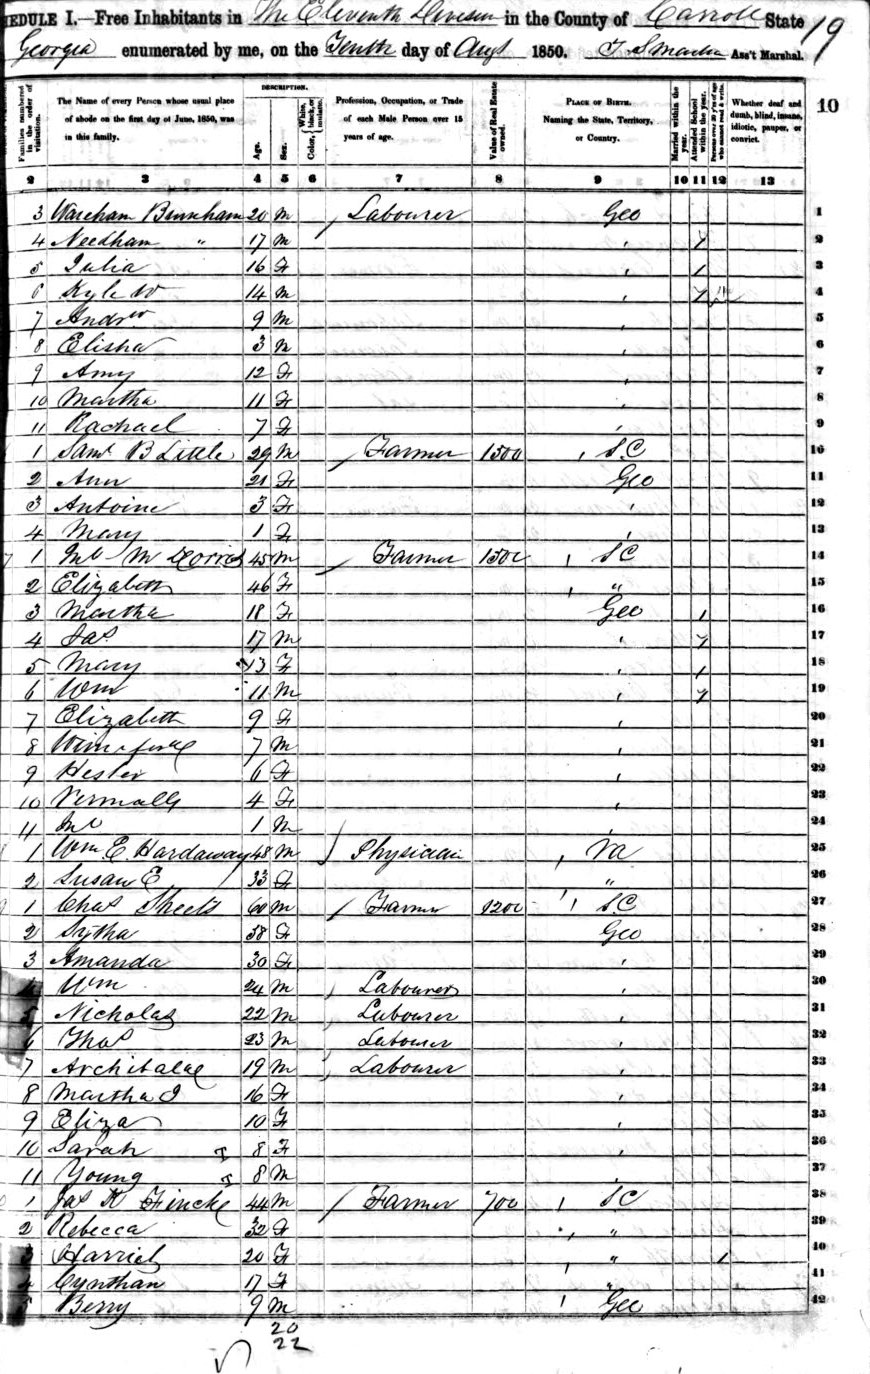 EDULE I.—Free Inhabitants in The Eleventh Division in the County of Carroll State 19
Georgia enumerated by me, on the Tenth day of Augt 1850. Ass't Marshal.
10
Families numbered in the order of visitation.
The Name of every Person whose usual place of abode on the first day of June, 1850, was in this family.
DESCRIPTION.
Age.
Sex.
Color, White, black, or mulatto.
Profession, Occupation, or Trade of each Male Person over 15 years of age.
Value of Real Estate owned.
PLACE OF BIRTH. Naming the State, Territory, or Country.
Married within the year.
Attended School within the year.
Persons over 20 y'rs of age who cannot read & write.
Whether deaf and dumb, blind, insane, idiotic, pauper, or convict.
2 3 4 5 6 7 8 9 10 11 12 13
3 Wareham Burnham 20 M Labourer Geo 1
4 Needham " 17 M 2
5 Julia 16 F 1 3
6 Kyle W 14 M 4
7 Andrw 9 M 5
8 Elisha 3 M 6
9 Amy 12 F 7
10 Martha 11 F 8
11 Rachael 7 F 9
1 Saml B Little 29 M Farmer 1500 S.C 10
2 Ann 21 F Geo 11
3 Antoine 3 F 12
4 Mary 1 F 13
1 M 45 M Farmer 1500 SC 14
2 Elizabeth 46 F " 15
3 Martha 18 F Geo 1 16
4 Jas 17 M 17
5 Mary 13 F 1 18
6 Wm 11 M 19
7 Elizabeth 9 F 20
8 7 M 21
9 Hester 6 F 22
10 4 F 23
11 1 M 24
1 Wm E Hardaway 48 M Physician Va 25
2 Susan E 33 F " 26
1 Chas Sheets 60 M Farmer 1200 S.C 27
2 Sytha 58 F Geo 28
3 Amanda 30 F 29
4 Wm 24 M Labourer 30
5 Nicholas 22 M Labourer 31
6 Thos 23 M Labourer 32
7 Archibald 19 M Labourer 33
8 Martha J 16 F 34
9 Eliza 10 F 35
10 Sarah 8 F 36
11 Young 8 M 37
1 Jas K Finche 44 M Farmer 700 SC 38
2 Rebecca 32 F " 39
3 Harriet 20 F " 1 40
4 Cynthan 17 F " 41
5 Berry 9 M Geo 42
20
22